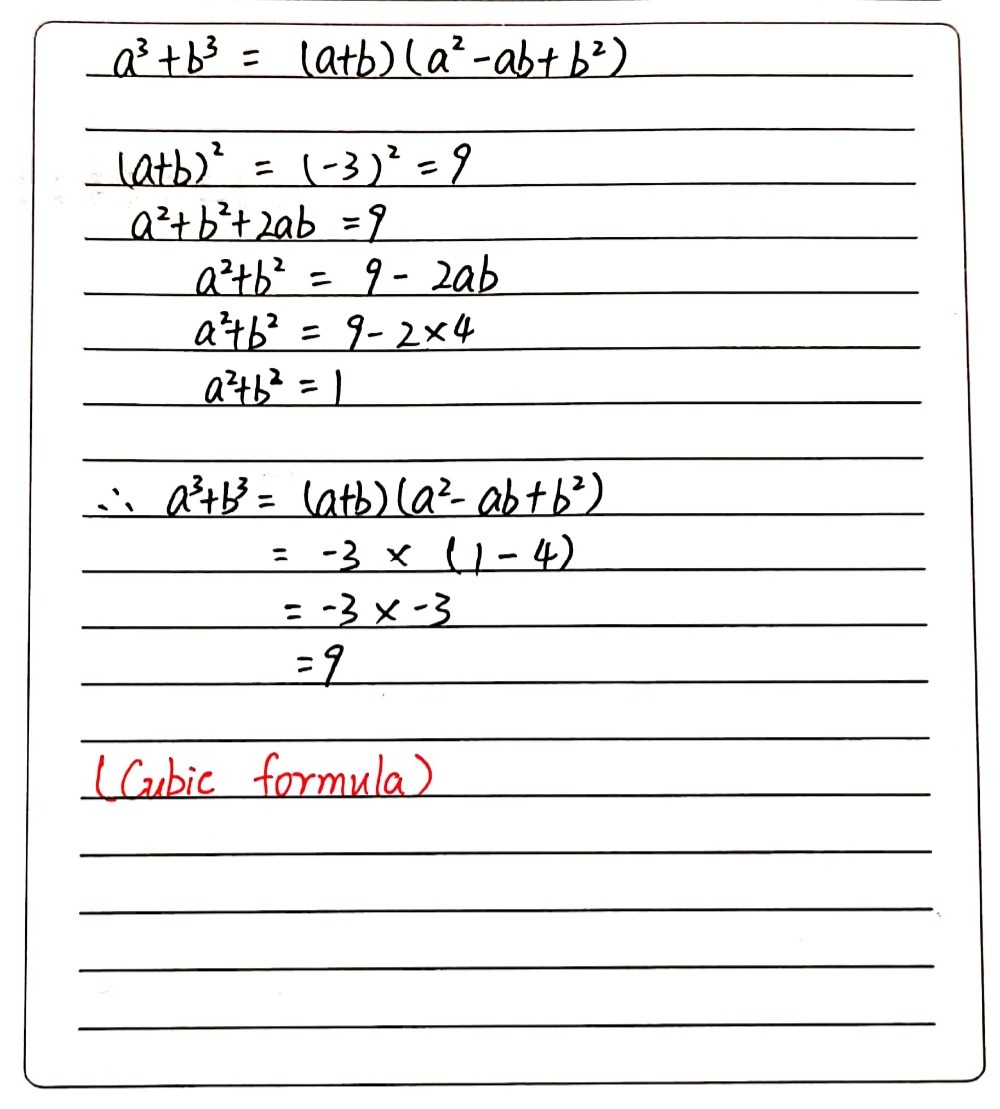 a³+b³ = (a+b)(a²-ab+b²)
(a+b)² = (-3)² = 9
a²+b²+2ab = 9
a²+b² = 9 - 2ab
a²+b² = 9 - 2×4
a²+b² = 1
∴ a³+b³ = (a+b)(a²-ab+b²)
= -3 × (1-4)
= -3 × -3
= 9
(Cubic formula)